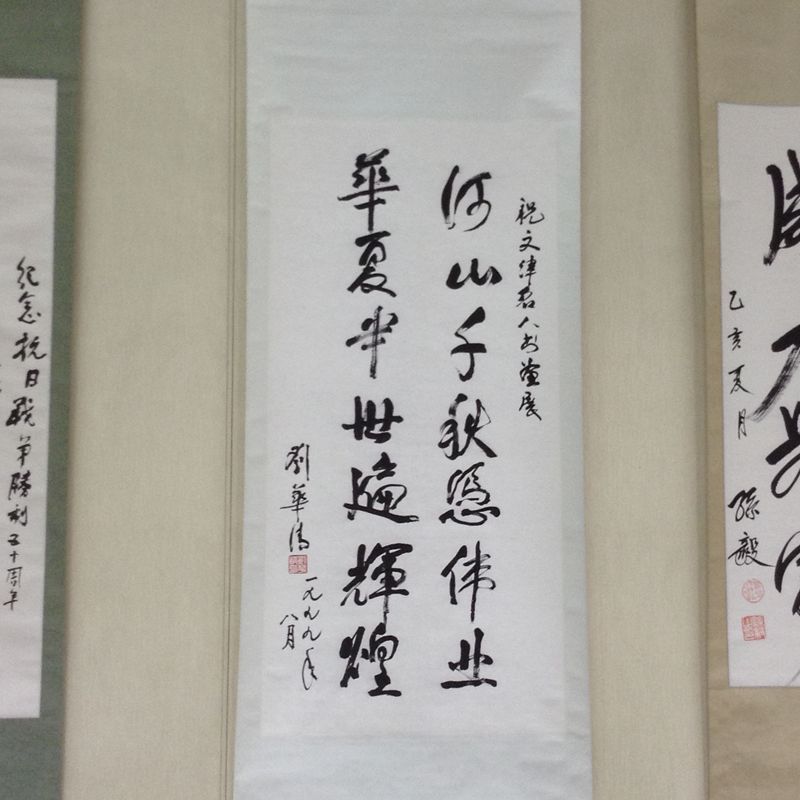 祝文津君人书画展
河山千秋憑伟业
華夏半世遍輝煌
劉華清
一九九九年
八月
乙亥夏月
孫毅
纪念抗日战争勝利五十周年